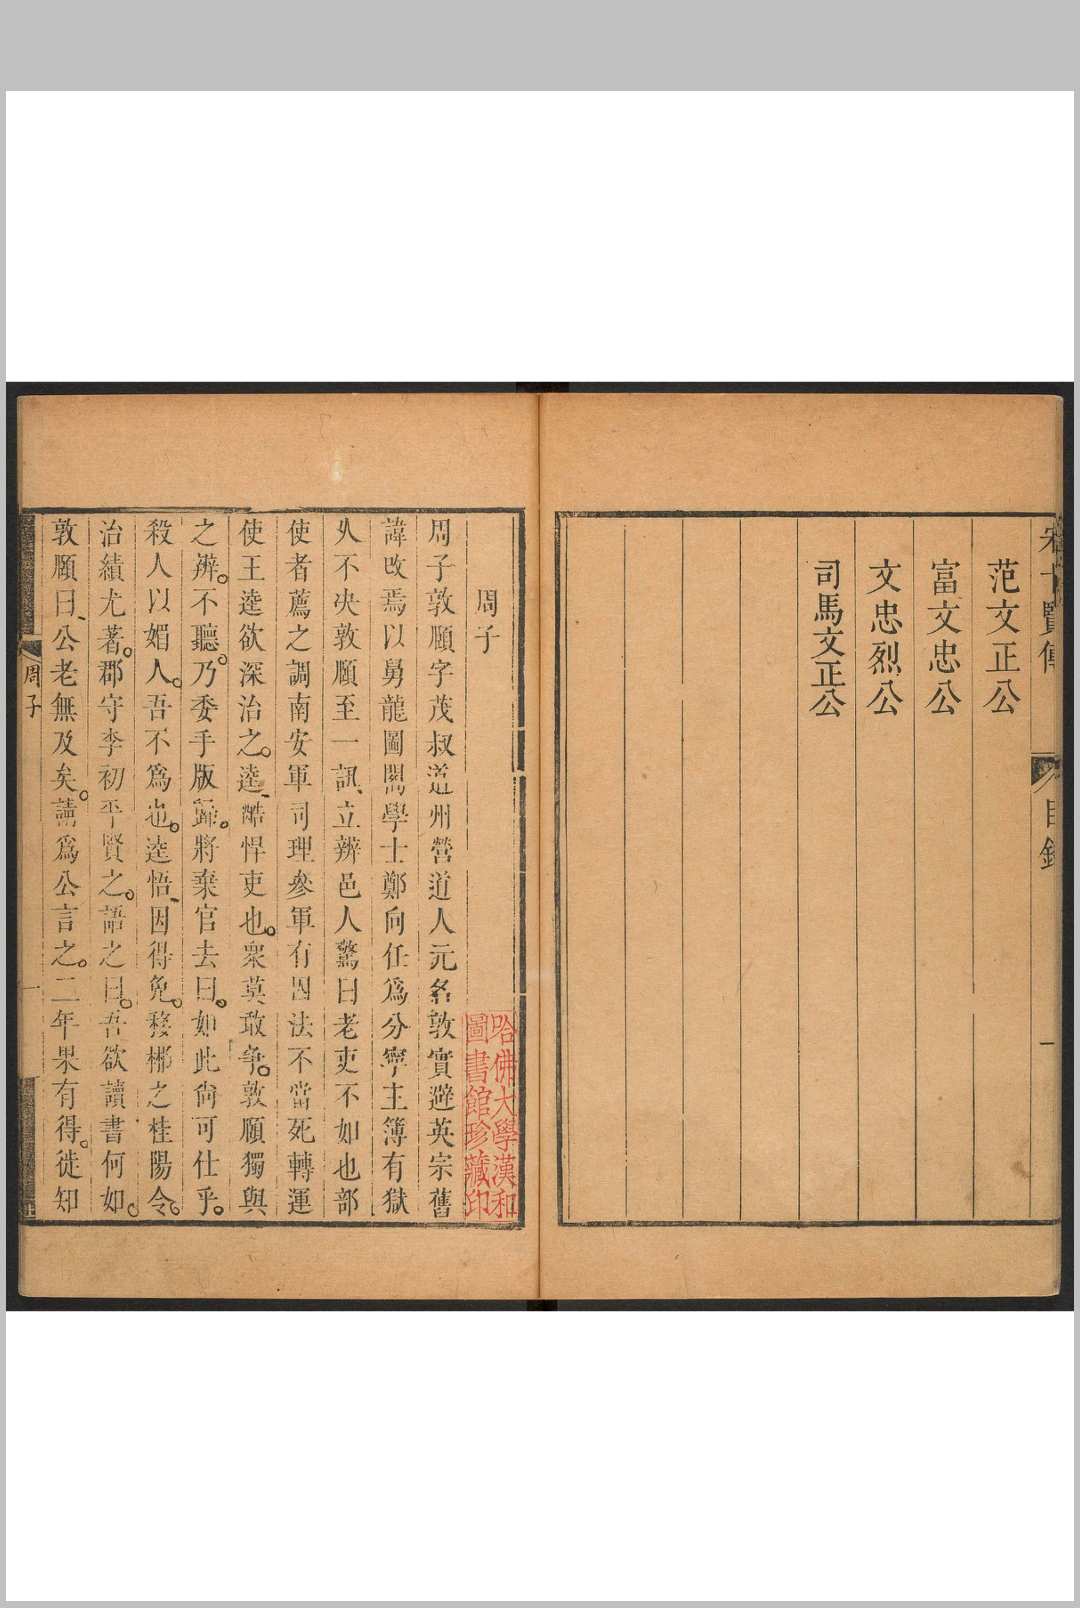 宋十賢傳
目錄
一
范文正公
富文忠公
文忠烈公
司馬文正公
哈佛大學漢和
圖書館珍藏印
周子
周子敦頤字茂叔道州營道人元名敦實避英宗舊
諱改焉以舅龍圖閣學士鄭向任爲分寧主簿有獄
久不决敦頤至一訊立辨邑人驚曰老吏不如也部
使者薦之調南安軍司理參軍有囚法不當死轉運
使王逵欲深治之。逵、酷悍吏也。衆莫敢爭。敦頤獨與
之辨。不聽。乃委手版歸。將棄官去。曰。如此尙可仕乎。
殺人以媚人。吾不爲也。逵悟、因得免。移郴之桂陽令。
治績尤著。郡守李初平賢之。語之曰。吾欲讀書何如。
敦頤曰、公老無及矣。請爲公言之。二年果有得。徙知
周子
一